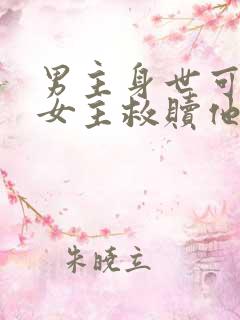 男主身世可
女主救贖他
朱曉立